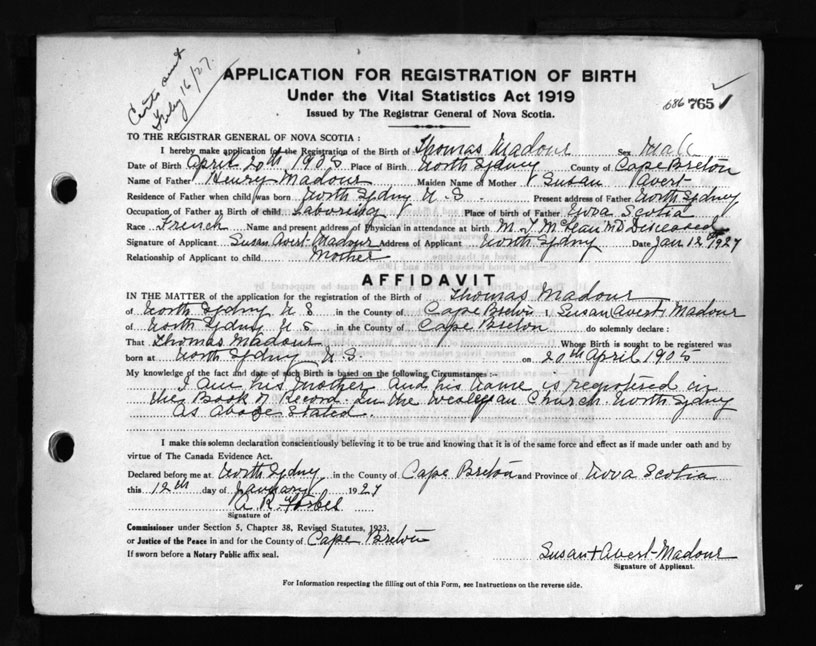 Certs sent
Feby 16/27.
APPLICATION FOR REGISTRATION OF BIRTH
Under the Vital Statistics Act 1919
Issued by The Registrar General of Nova Scotia.
686 765
TO THE REGISTRAR GENERAL OF NOVA SCOTIA :
I hereby make application for the Registration of the Birth of Thomas Madour Sex Male
Date of Birth April 20th 1905 Place of Birth North Sydney County of Cape Breton
Name of Father Henry Madour Maiden Name of Mother Susan Avert
Residence of Father when child was born North Sydney N.S. Present address of Father North Sydney
Occupation of Father at Birth of child Laboring Place of birth of Father Nova Scotia
Race French Name and present address of Physician in attendance at birth M. T. McLean MD Diseased
Signature of Applicant Susan Avert Madour Address of Applicant North Sydney Date Jan 12th 1927
Relationship of Applicant to child Mother
AFFIDAVIT
IN THE MATTER of the application for the registration of the Birth of Thomas Madour
of North Sydney N S in the County of Cape Breton I, Susan Avert Madour
of North Sydney N S in the County of Cape Breton do solemnly declare :
That Thomas Madour Whose Birth is sought to be registered was
born at North Sydney N.S. on 20th April 1905
My knowledge of the fact and date of such Birth is based on the following Circumstances :-
I am his mother and his name is registered in
the Book of Record. In the Wesleyan Church. North Sydney
As Above Stated.
I make this solemn declaration conscientiously believing it to be true and knowing that it is of the same force and effect as if made under oath and by
virtue of The Canada Evidence Act.
Declared before me at North Sydney in the County of Cape Breton and Province of Nova Scotia
this 12th day of January 1927
A. R. Forbes
Signature of
Commissioner under Section 5, Chapter 38, Revised Statutes, 1923,
or Justice of the Peace in and for the County of Cape Breton
If sworn before a Notary Public affix seal.
Susan + Avert-Madour
Signature of Applicant.
For Information respecting the filling out of this Form, see Instructions on the reverse side.